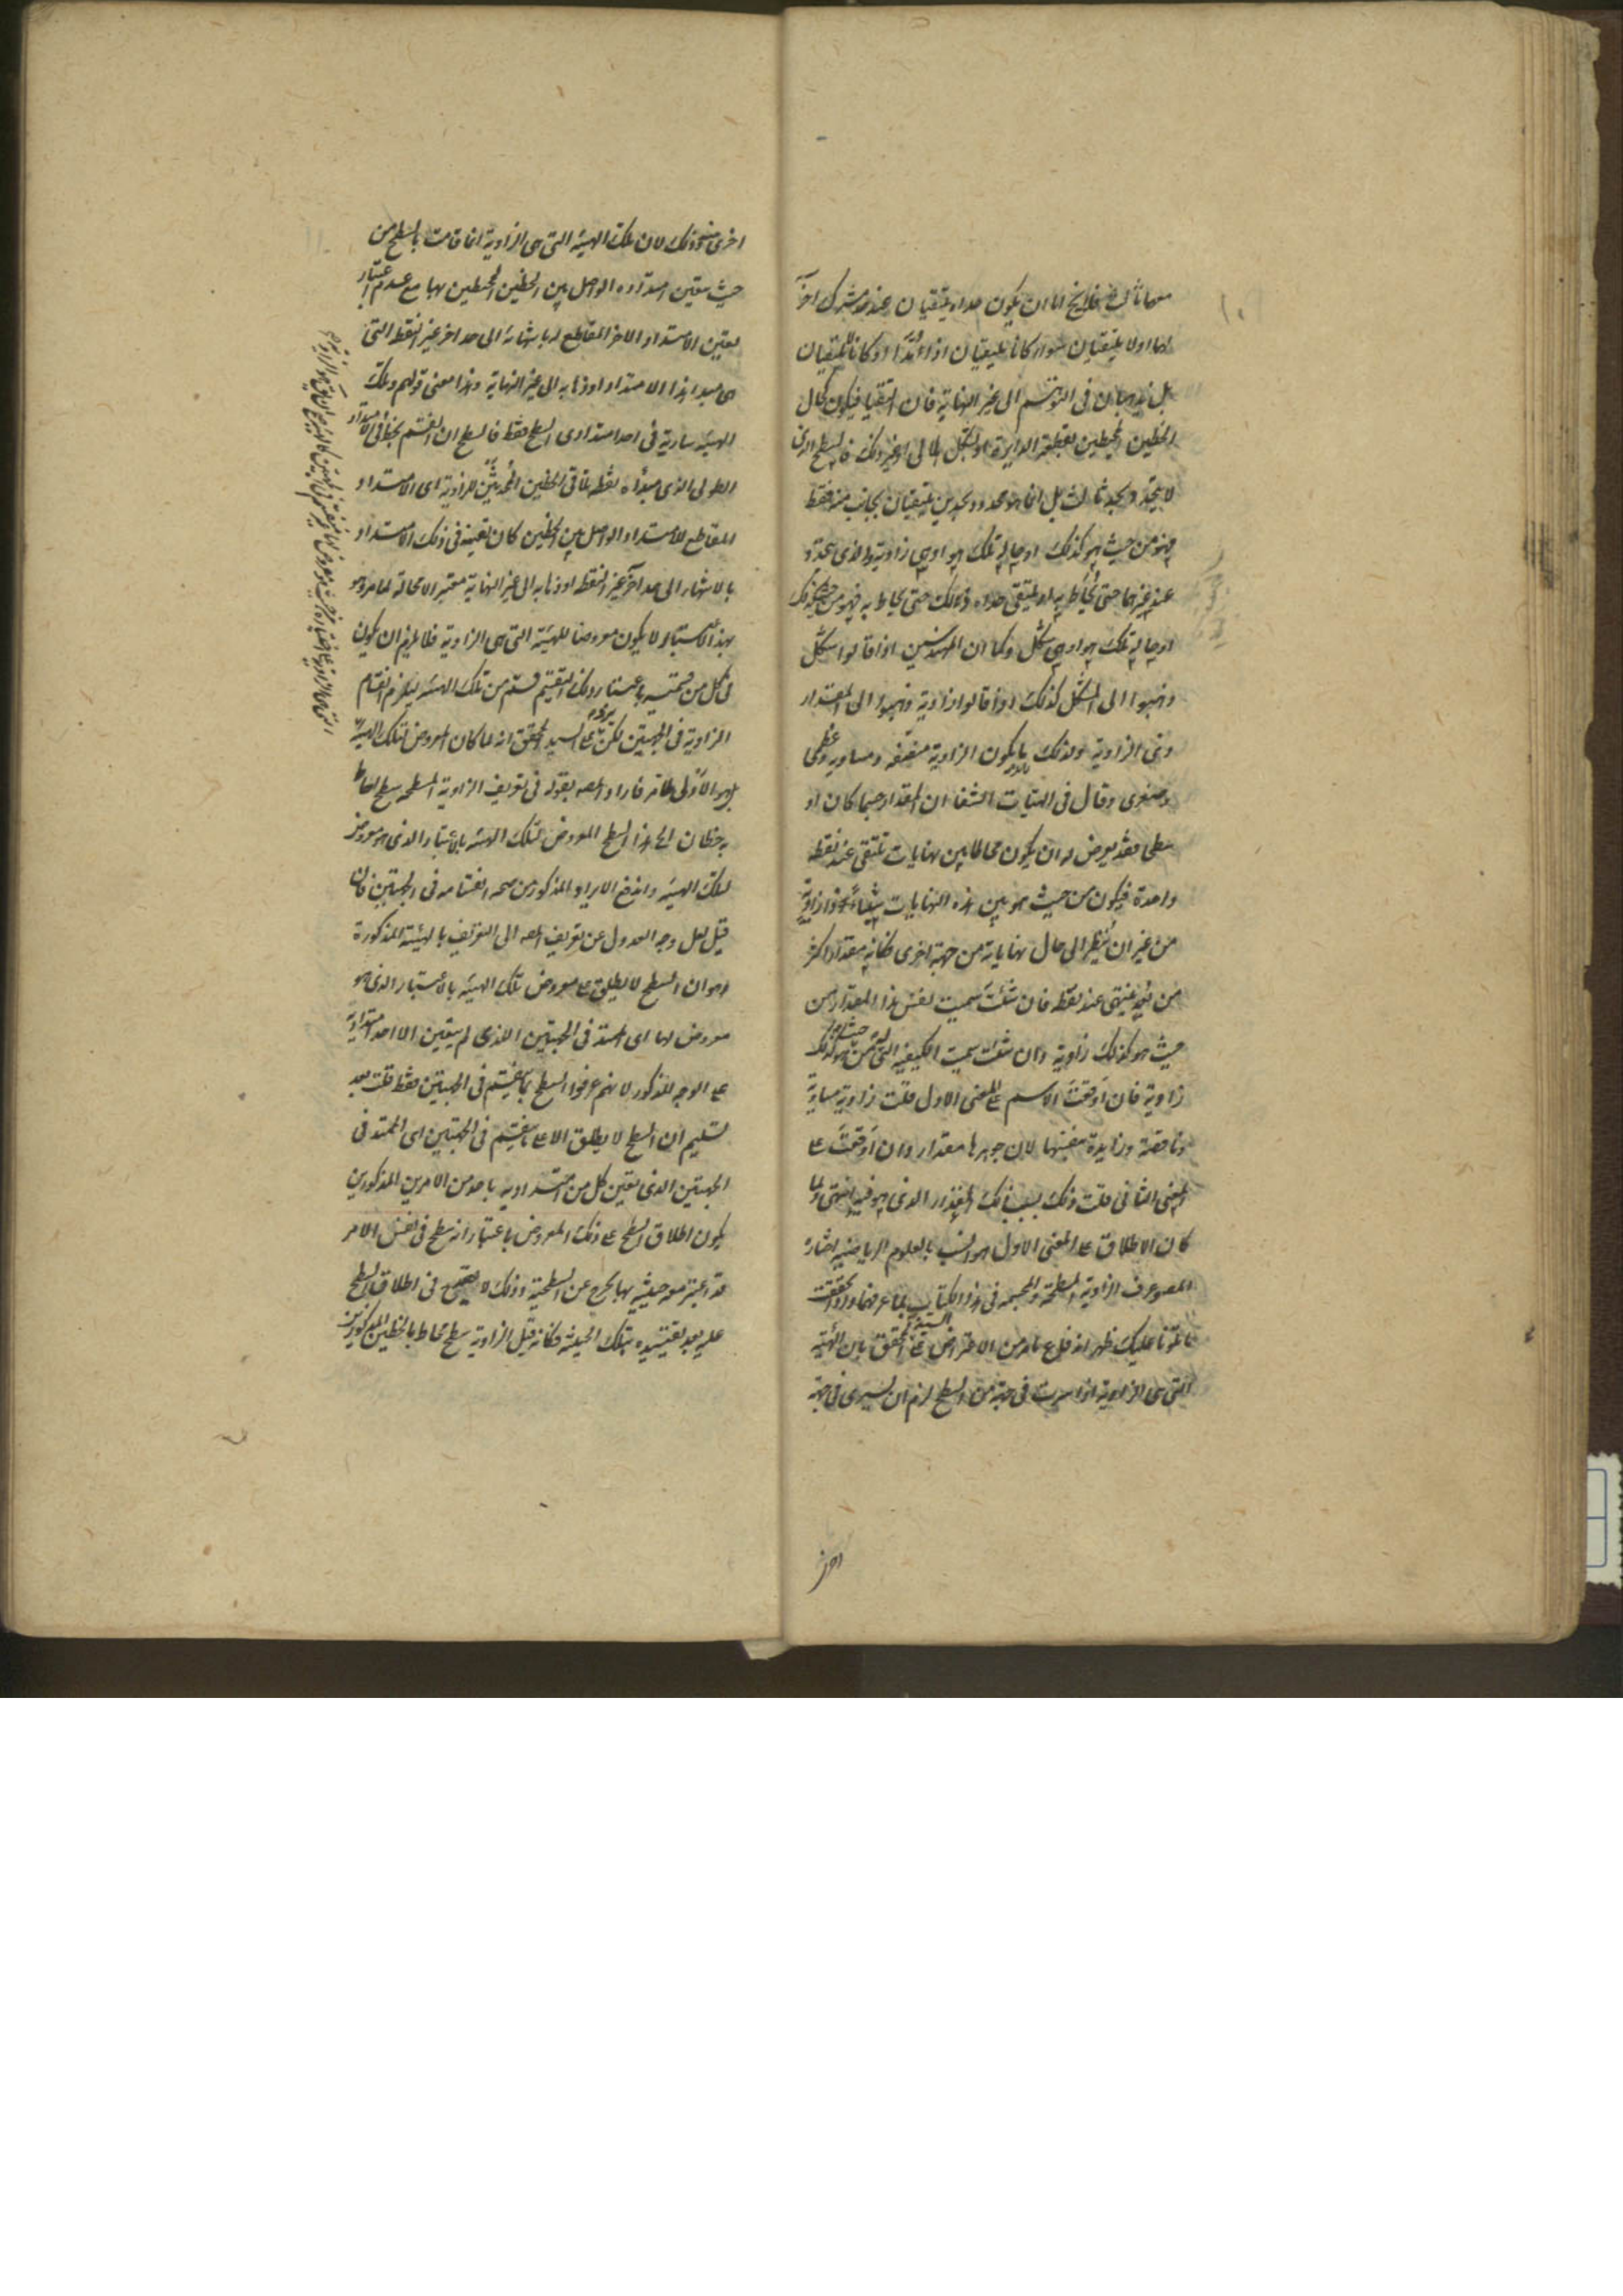 معهما ثالث فلا يخ اما ان يكون حداه يلتقيان عند حد مشترك اخر
لهما او لا يلتقيان سواء كانا يلتقيان اذا مُدّا او كانا لا يلتقيان
بل يذهبان فى التوهم الى غير النهاية فان التقيا فيكون كحال
الخطين المحيطين بقطعة الدايرة او الشكل الهلالى او غير ذلك فالسطح الذى
لا يتحدد بحد ثالث بل انما هو محدود بحدين يلتقيان بجانب منه فقط
فهو من حيث هو كذلك او حاله تلك هو او هى زاوية والذى يتحدد
عند غيرهما حتى يُحاط به او يلتقى حداه كذلك حتى يحاط به فهو من حيث كذلك
او حاله تلك هو او هى شكل وكما ان المهندسين اذا قالوا شكل
ذهبوا الى المشكل كذلك اذا قالوا زاوية ذهبوا الى المقدار
ذى الزاوية ولذلك ما يكون الزاوية منصفة ومساوية وعظمى
وصغرى وقال فى الهيات الشفا ان المقدار جسما كان او
سطحا فقد يعرض له ان يكون محاطا بين نهايات تلتقى عند نقطة
واحدة فيكون من حيث هو بين هذه النهايات شيئا ذو زاوية
من غير ان يُنظر الى حال نهاياته من جهة اخرى فكانه مقدار اكثر
من بُعد ينتهى عند نقطة فان شئتَ سميت نفس هذا المقدار من
حيث هو كذلك زاوية وان شئت سميت الكيفية التى له من حيث هو كذلك
زاوية فان اَوقعتَ الاسم على المعنى الاول قلت زاوية مساوية
وناقصة وزايدة بنفسها لان جوهرها مقدار وان اَوقعتَ على
المعنى الثانى قلت ذلك بسبب ذلك المقدار الذى هو فيه انتهى ولما
كان الاطلاق على المعنى الاول هو انسب بالعلوم الرياضية اختاره
المصـ وعرف الزاوية المسطحة والمجسمة فى هذا الكتاب بما عرفهما واذا تحققت
ما تلونا عليك ظهر اندفاع ما مر من الاعتراض على السيد المحقق بان الهيئة
التى هى الزاوية اذا سرت فى جهة من السطح لزم ان يسرى فى جهة
اخرى
اخرى منه وذلك لان تلك الهيئة التى هى الزاوية انما قامت بالسطح من
حيث تعين امتداده الواصل بين الخطين المحيطين بها مع عدم اعتبار
تعين الامتداد الاخر المقاطع له بانتهائه الى حد اخر غير النقطة التى
هى مبدا هذا الامتداد او ذهابه الى غير النهاية وهذا معنى قولهم وتلك
الهيئة سارية فى احد امتدادى السطح فقط فالسطح ان انقسم بخط فى الامتداد
الطولى الذى مبدأه نقطة تلاقى الخطين المُحدِثين للزاوية اى الامتداد
المقاطع للامتداد الواصل بين الخطين كان تعينه فى ذلك الامتداد
بالانتهاء الى حد آخر غير النقطة او ذهابه الى غير النهاية معتبرا لا محالة لما مر وهو
بهذا الاعتبار لا يكون معروضا للهيئة التى هى الزاوية فلا يلزم ان يكون
فى كل من قسميه باعتبار ذلك التقسيم قسم من تلك الهيئة ليلزم انقسام
الزاوية فى الجهتين لكن يرد على السيد المحقق انه لما كان المعروض لتلك الهيئة
هو الاولى ظاهر فاراد المصـ بقوله فى تعريف الزاوية المسطحة سطح احاط
به خطان الخ هذا السطح المعروض لتلك الهيئة بالاعتبار الذى هو معروض
لتلك الهيئة واندفع الايراد المذكور من صحة انقسامه فى الجهتين فان
قيل لعل وجه العدول عن تعريف المصـ الى التعريف بالهيئة المذكورة
هو ان السطح لا يطلق على معروض تلك الهيئة بالاعتبار الذى هو
معروض لها اى الممتد فى الجهتين اللذى لم يتعين الا احد امتداديه
على الوجه المذكور لانهم عرفوا السطح بما ينقسم فى الجهتين فقط قلت بعد
تسليم ان السطح لا يطلق الا على ما ينقسم فى الجهتين اى الممتد فى
الجهتين الذى تعين كل من امتداديه باحد من الامرين المذكورين
يكون اطلاق السطح على ذلك المعروض باعتبار انه سطح فى نفس الامر
قد اعتبر معه حيثية بها يخرج عن السطحية وذلك لا يقدح فى اطلاق السطح
عليه بعد تقييده بتلك الحيثية فكانه قيل الزاوية سطح محاط بالخطين المذكورين